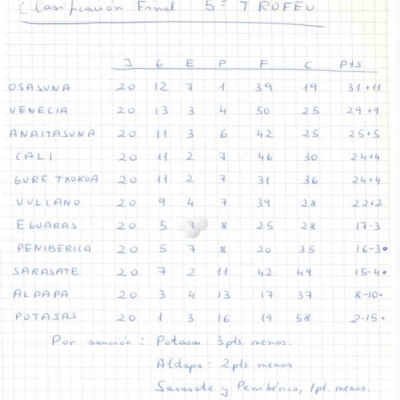 Clasificación Final 5º TROFEO
J G E P F C Pts
OSASUNA 20 12 7 1 39 19 31+11
VENECIA 20 13 3 4 50 25 29+9
ANAITASUNA 20 11 3 6 42 25 25+5
CALI 20 11 2 7 46 30 24+4
GURE TXOKOA 20 11 2 7 31 36 24+4
VULCANO 20 9 4 7 39 28 22+2
EGUARAS 20 5 7 8 25 28 17-3
PENIBERICA 20 5 7 8 20 35 16-3•
SARASATE 20 7 2 11 42 49 15-4•
ALDAPA 20 3 4 13 17 37 8-10•
POTASAS 20 1 3 16 19 58 2-15•
Por sanción: Potasas 3 pts menos.
Aldapa: 2 pts menos
Sarasate y Penibérica, 1 pt. menos.